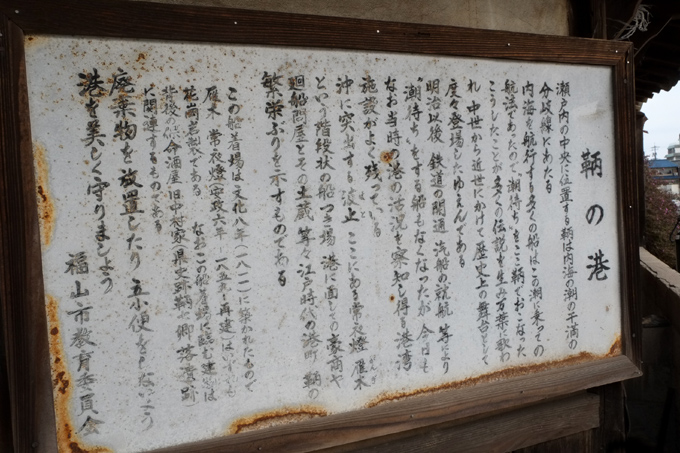 鞆の港
瀬戸内の中央に位置する鞆は内海の潮の干満の
分岐線にあたる
内海を航行する多くの船はこの潮に乗っての
航法であったので、潮待ちをここ鞆でおこなった
こうしたことが多くの伝説を生み万葉に歌わ
れ 中世から近世にかけて歴史上の舞台として
度々登場したゆえんである
明治以後 鉄道の開通 汽船の就航 等により
潮待ちをする船もなくなったが 今日も
なお当時の港の活況を察知し得る港湾
施設がよく残っている
沖に突出する波止 ここにある常夜燈 雁木
がんぎ
という階段状の船つき場 港に面しての豪商や
廻船問屋とその土蔵 等々江戸時代の港町 鞆の
繁栄ぶりを示すものである
この船着場は文化八年(一八一一)に築かれたもので
雁木 常夜燈(安政六年 一八五九・再建)はいずれも
花崗岩製である なおこの船着場に臨む建物は
背後の保命酒屋(旧中村家)県史跡鞆七卿落遺跡
に関連するものである
廃棄物を放置したり 立小便をしないよう
港を美しく守りましょう
福山市教育委員会